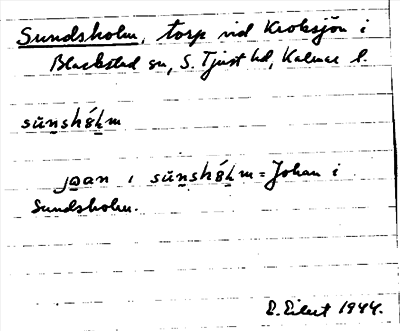 Sundsholm, torp vid Kroksjön i
Blackstad sn, S. Tjust hd, Kalmar l.
sŭn̲shól̲m
jo̲an i sŭn̲shól̲m = Johan i
Sundsholm.
E. Eilert 1944.